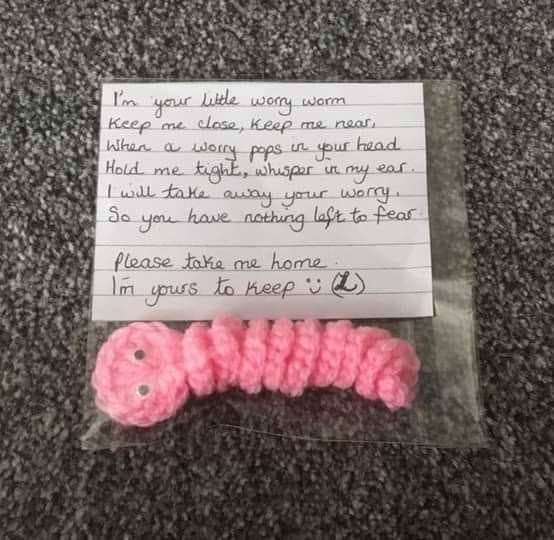 I'm your little worry worm
Keep me close, Keep me near,
When a worry pops in your head
Hold me tight, whisper in my ear.
I will take away your worry,
So you have nothing left to fear.
Please take me home.
I'm yours to Keep :) (L)